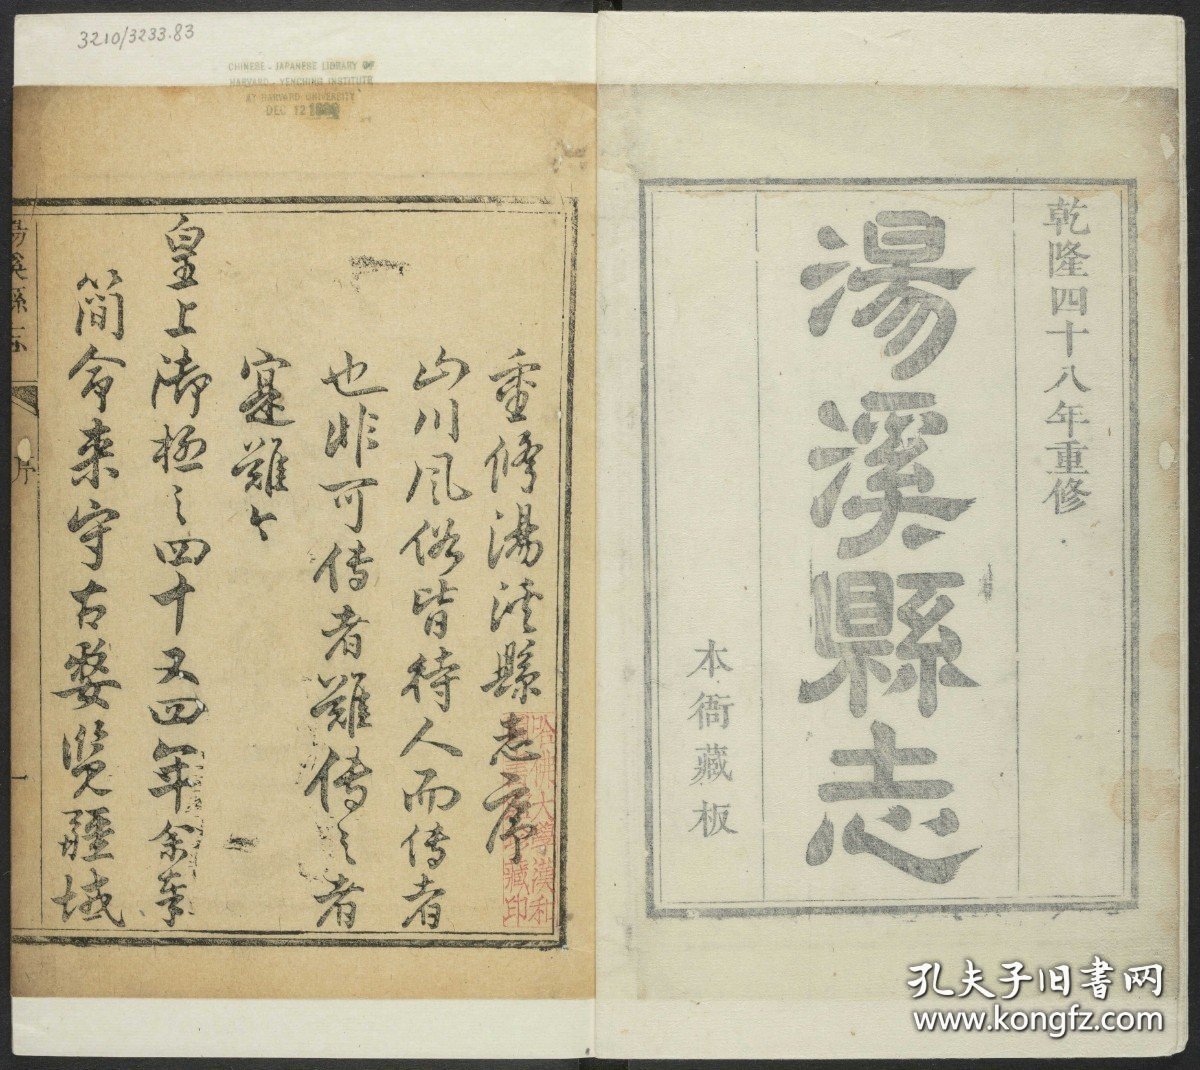 乾隆四十八年重修
湯溪縣志
本衙藏板
3210/3233.83
CHINESE - JAPANESE LIBRARY OF
HARVARD - YENCHING INSTITUTE
AT HARVARD UNIVERSITY
DEC 12
重修湯溪縣志序
山川風俗皆待人而传者
也非可传者難傳之者
寔難今
皇上御極之四十又四年余奉
簡命来守古婺览疆城
湯溪縣志
序
一
哈佛大學漢和
圖書館珍藏印
孔夫子旧书网
www.kongfz.com